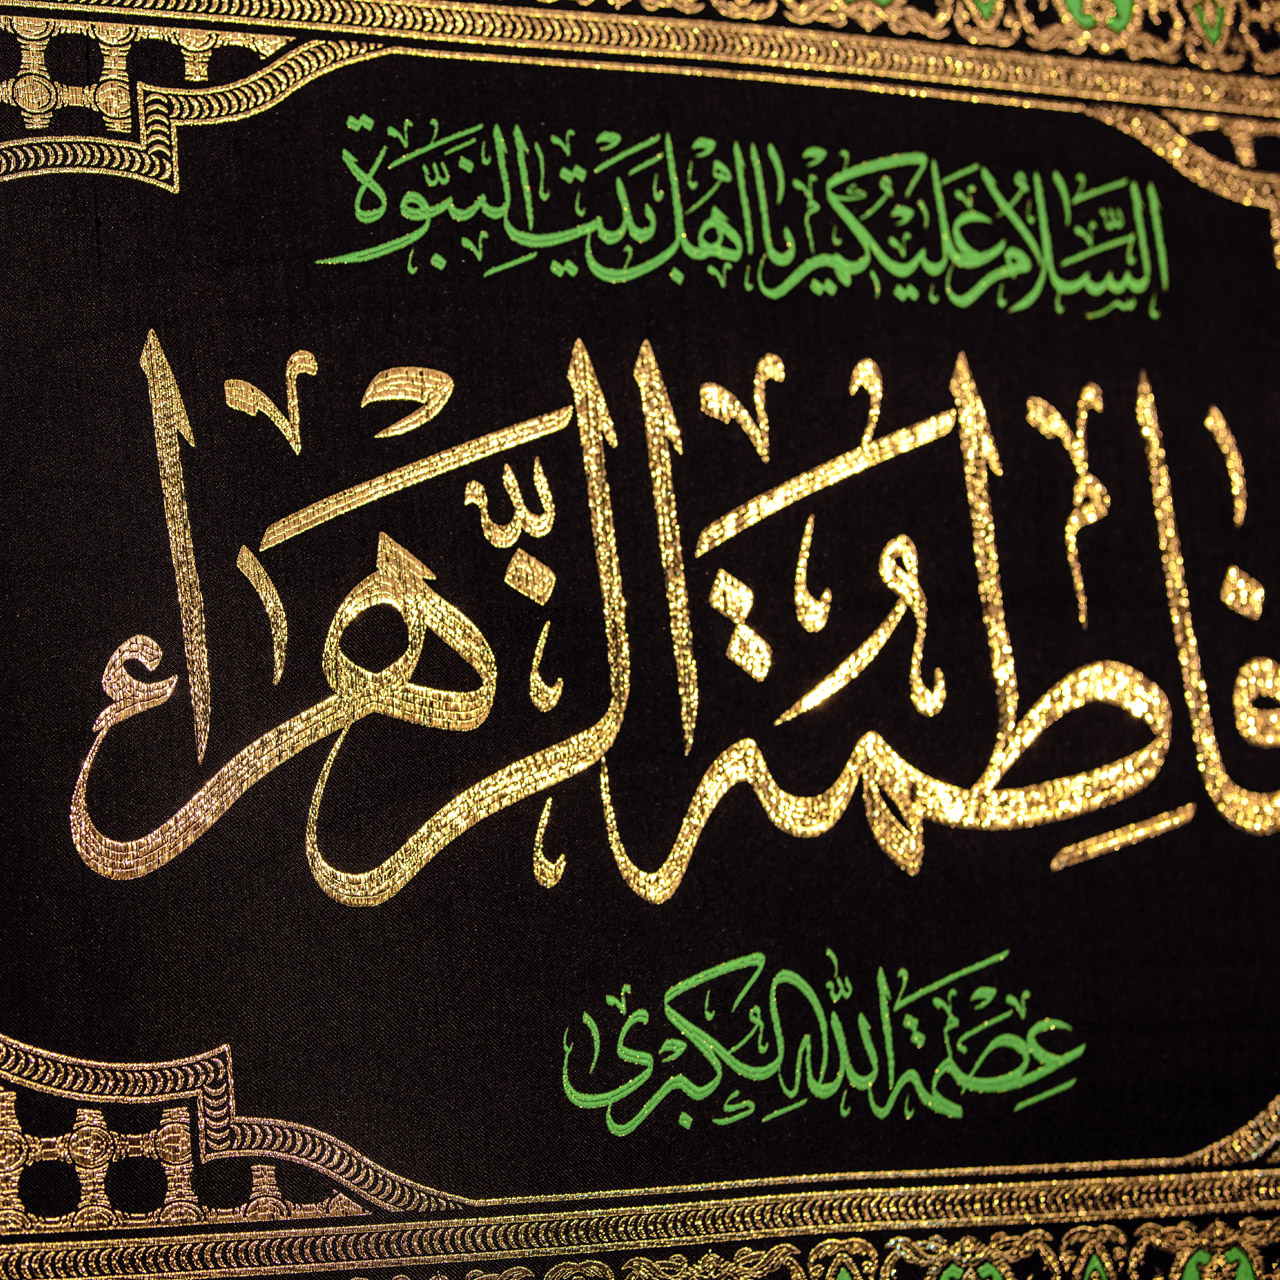 السَّلامُ عَلَيْكُم يا اهْلَ بَيْتِ النَبُوَّةِ
فاطِمَةَ الزَّهْراء
عِصْمَةَ اللهِ الكُبْرى